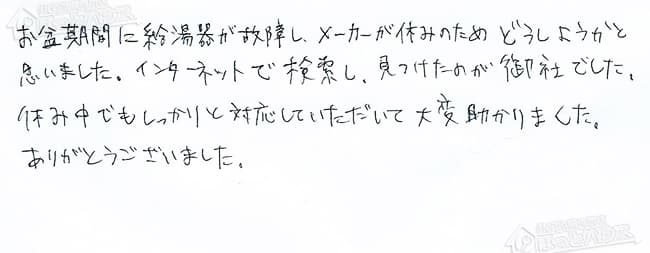 お盆期間に給湯器が故障し、メーカーが休みのためどうしようかと
思いました。インターネットで検索し、見つけたのが御社でした。
休み中でもしっかりと対応していただいて大変助かりました。
ありがとうございました。